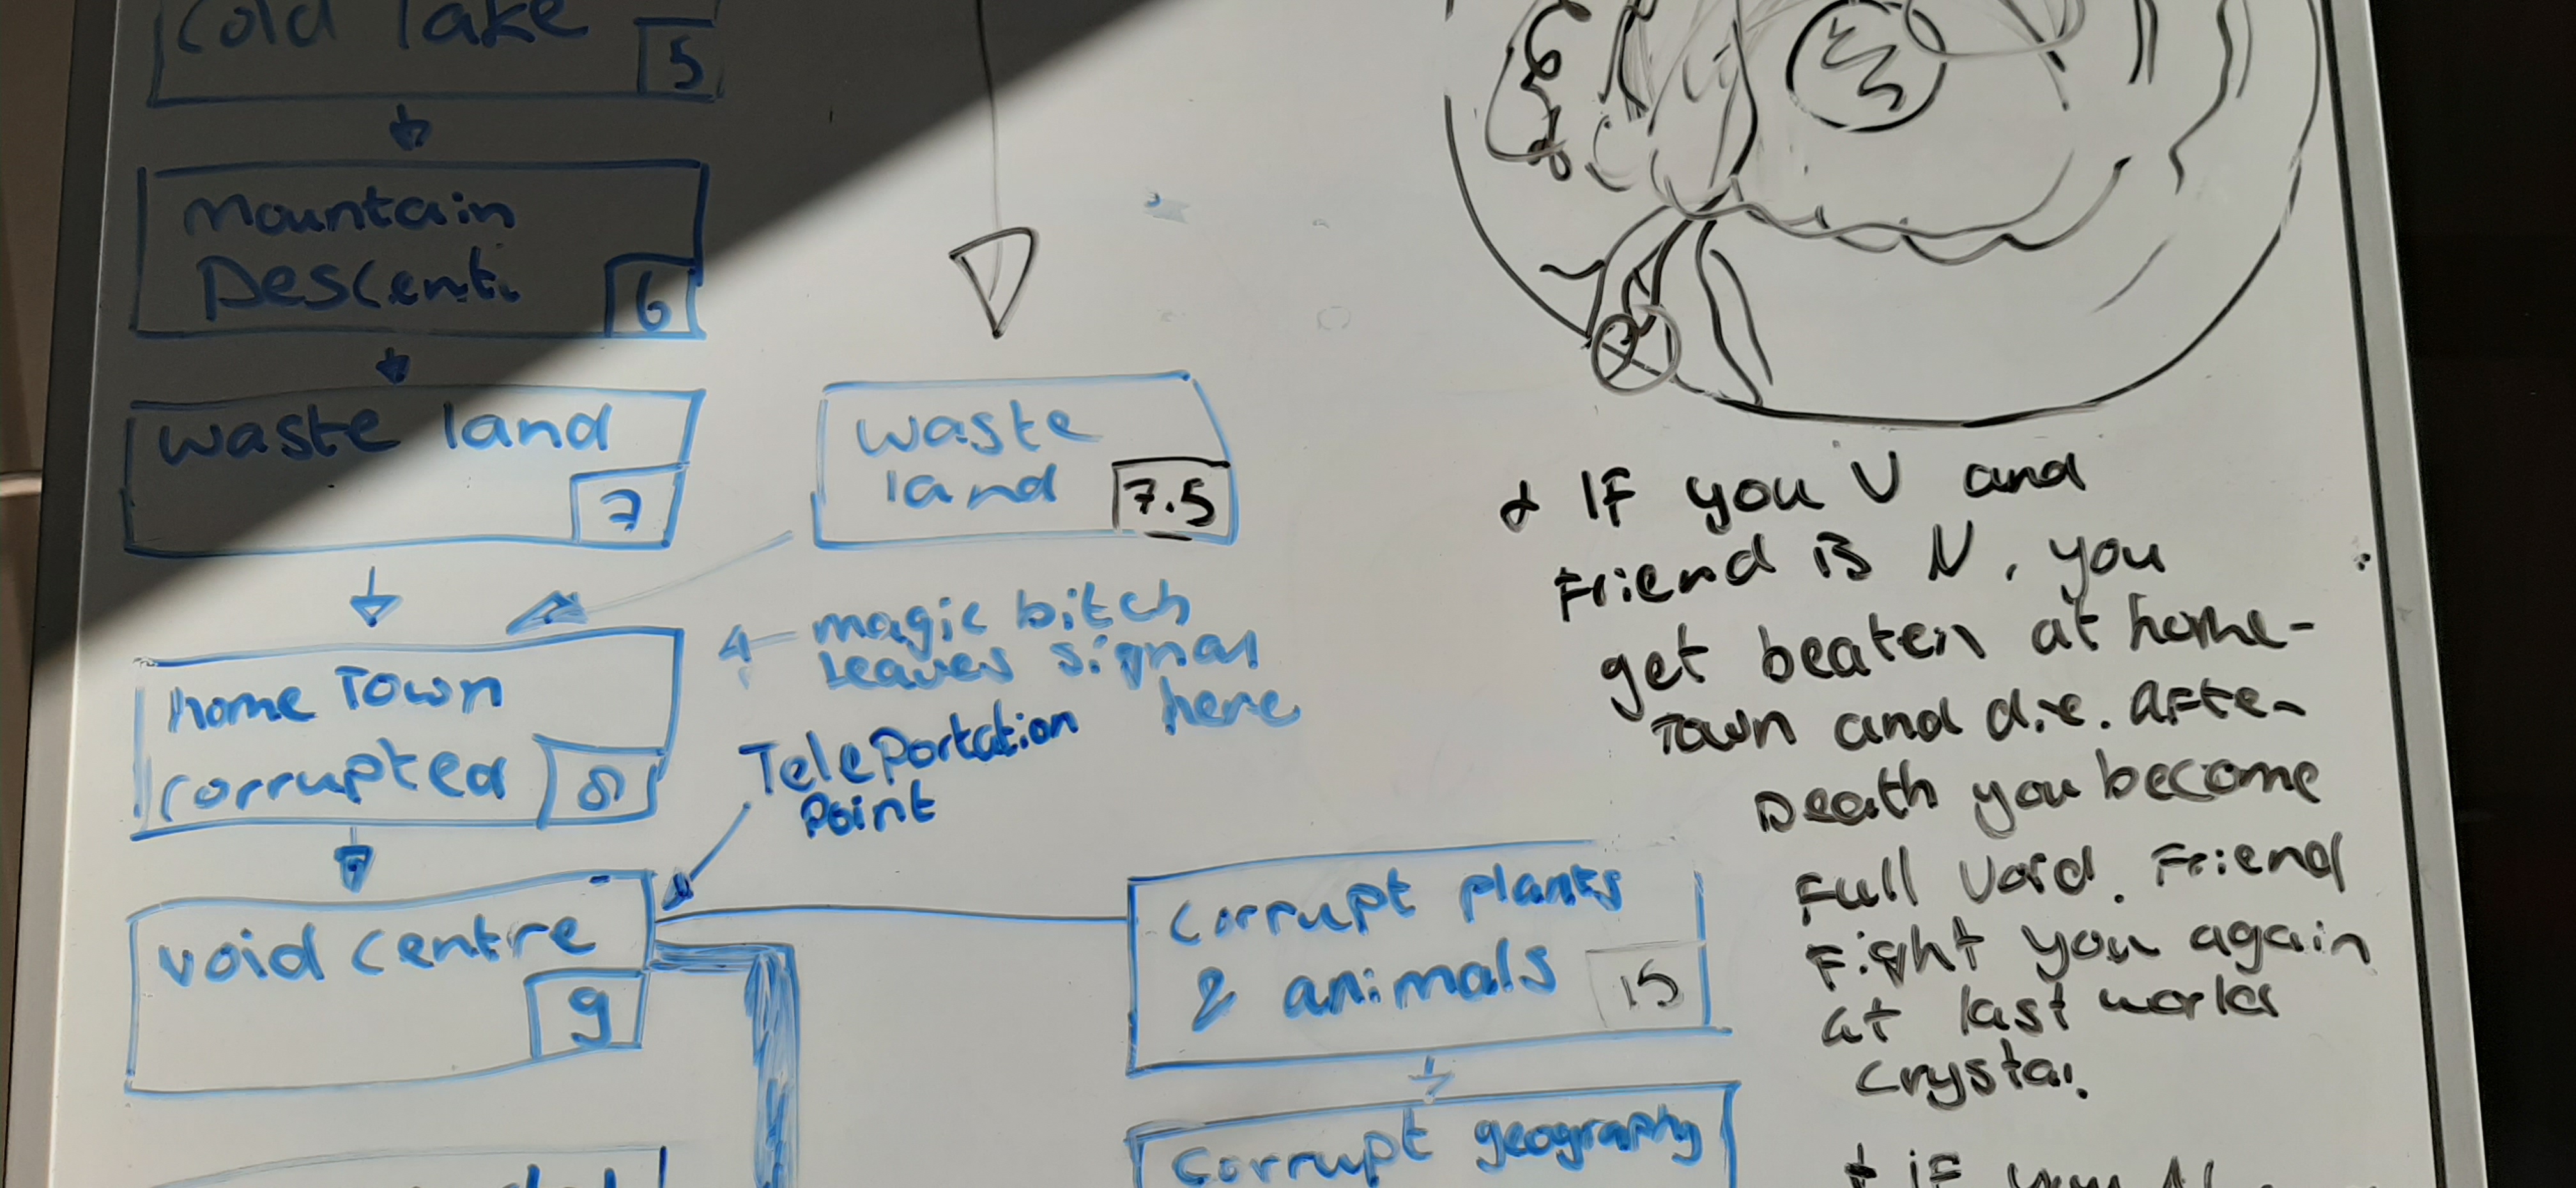 Cold lake
5
Mountain
Descent.
6
waste land
7
waste
land
7.5
magic bitch
leaves signal
here
home Town
corrupted
8
Teleportation
Point
void centre
9
corrupt plants
& animals
15
corrupt geography
IF you V and
Friend is N, you
get beaten at home-
Town and die. After
Death you become
Full Void. Friend
Fight you again
at last works
crystal.
if you